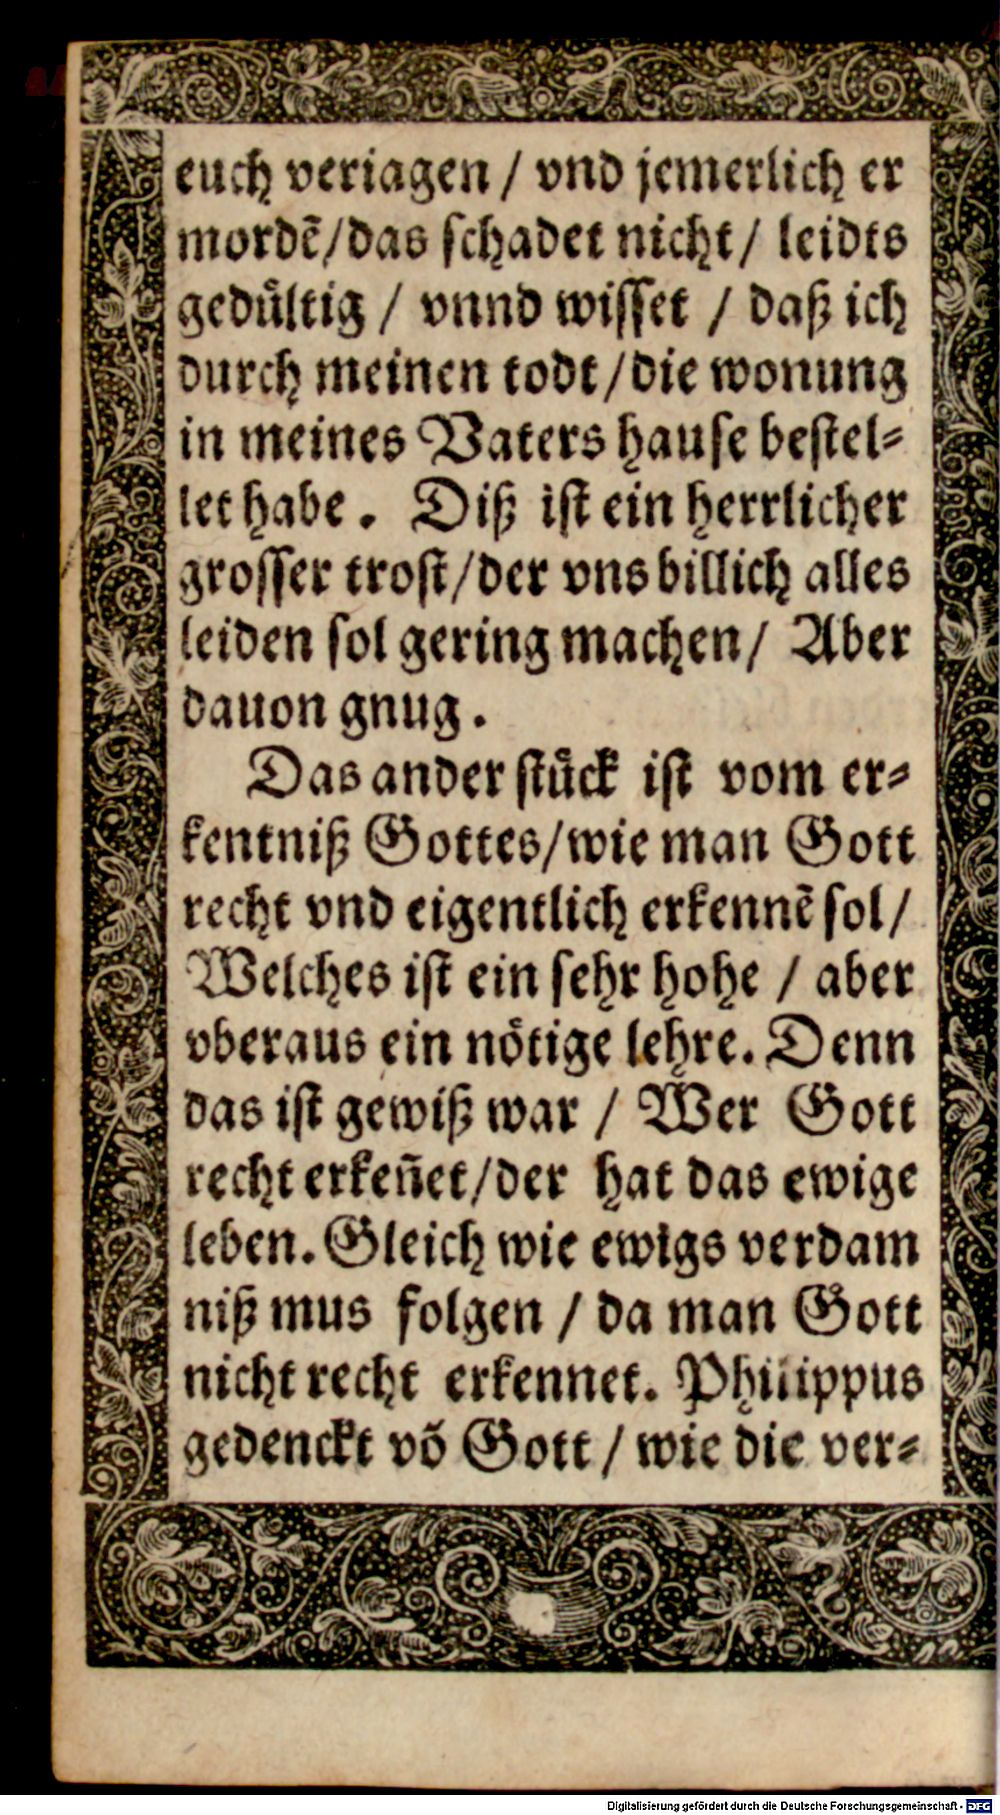 euch veriagen / vnd jemerlich er
mordẽ/das schadet nicht / leidts
gedůltig / vnnd wisset / daß ich
durch meinen todt /die wonung
in meines Vaters hause bestel-
let habe . Diß ist ein herrlicher
grosser trost/der vns billich alles
leiden sol gering machen/ Aber
dauon gnug .
Das ander stůck ist vom er-
kentniß Gottes/wie man Gott
recht vnd eigentlich erkennẽ sol/
Welches ist ein sehr hohe / aber
vberaus ein nötige lehre. Denn
das ist gewiß war / Wer Gott
recht erkeñet/der hat das ewige
leben. Gleich wie ewigs verdam
niß mus folgen / da man Gott
nicht recht erkennet. Philippus
gedenckt võ Gott / wie die ver-
Digitalisierung gefördert durch die Deutsche Forschungsgemeinschaft - DFG